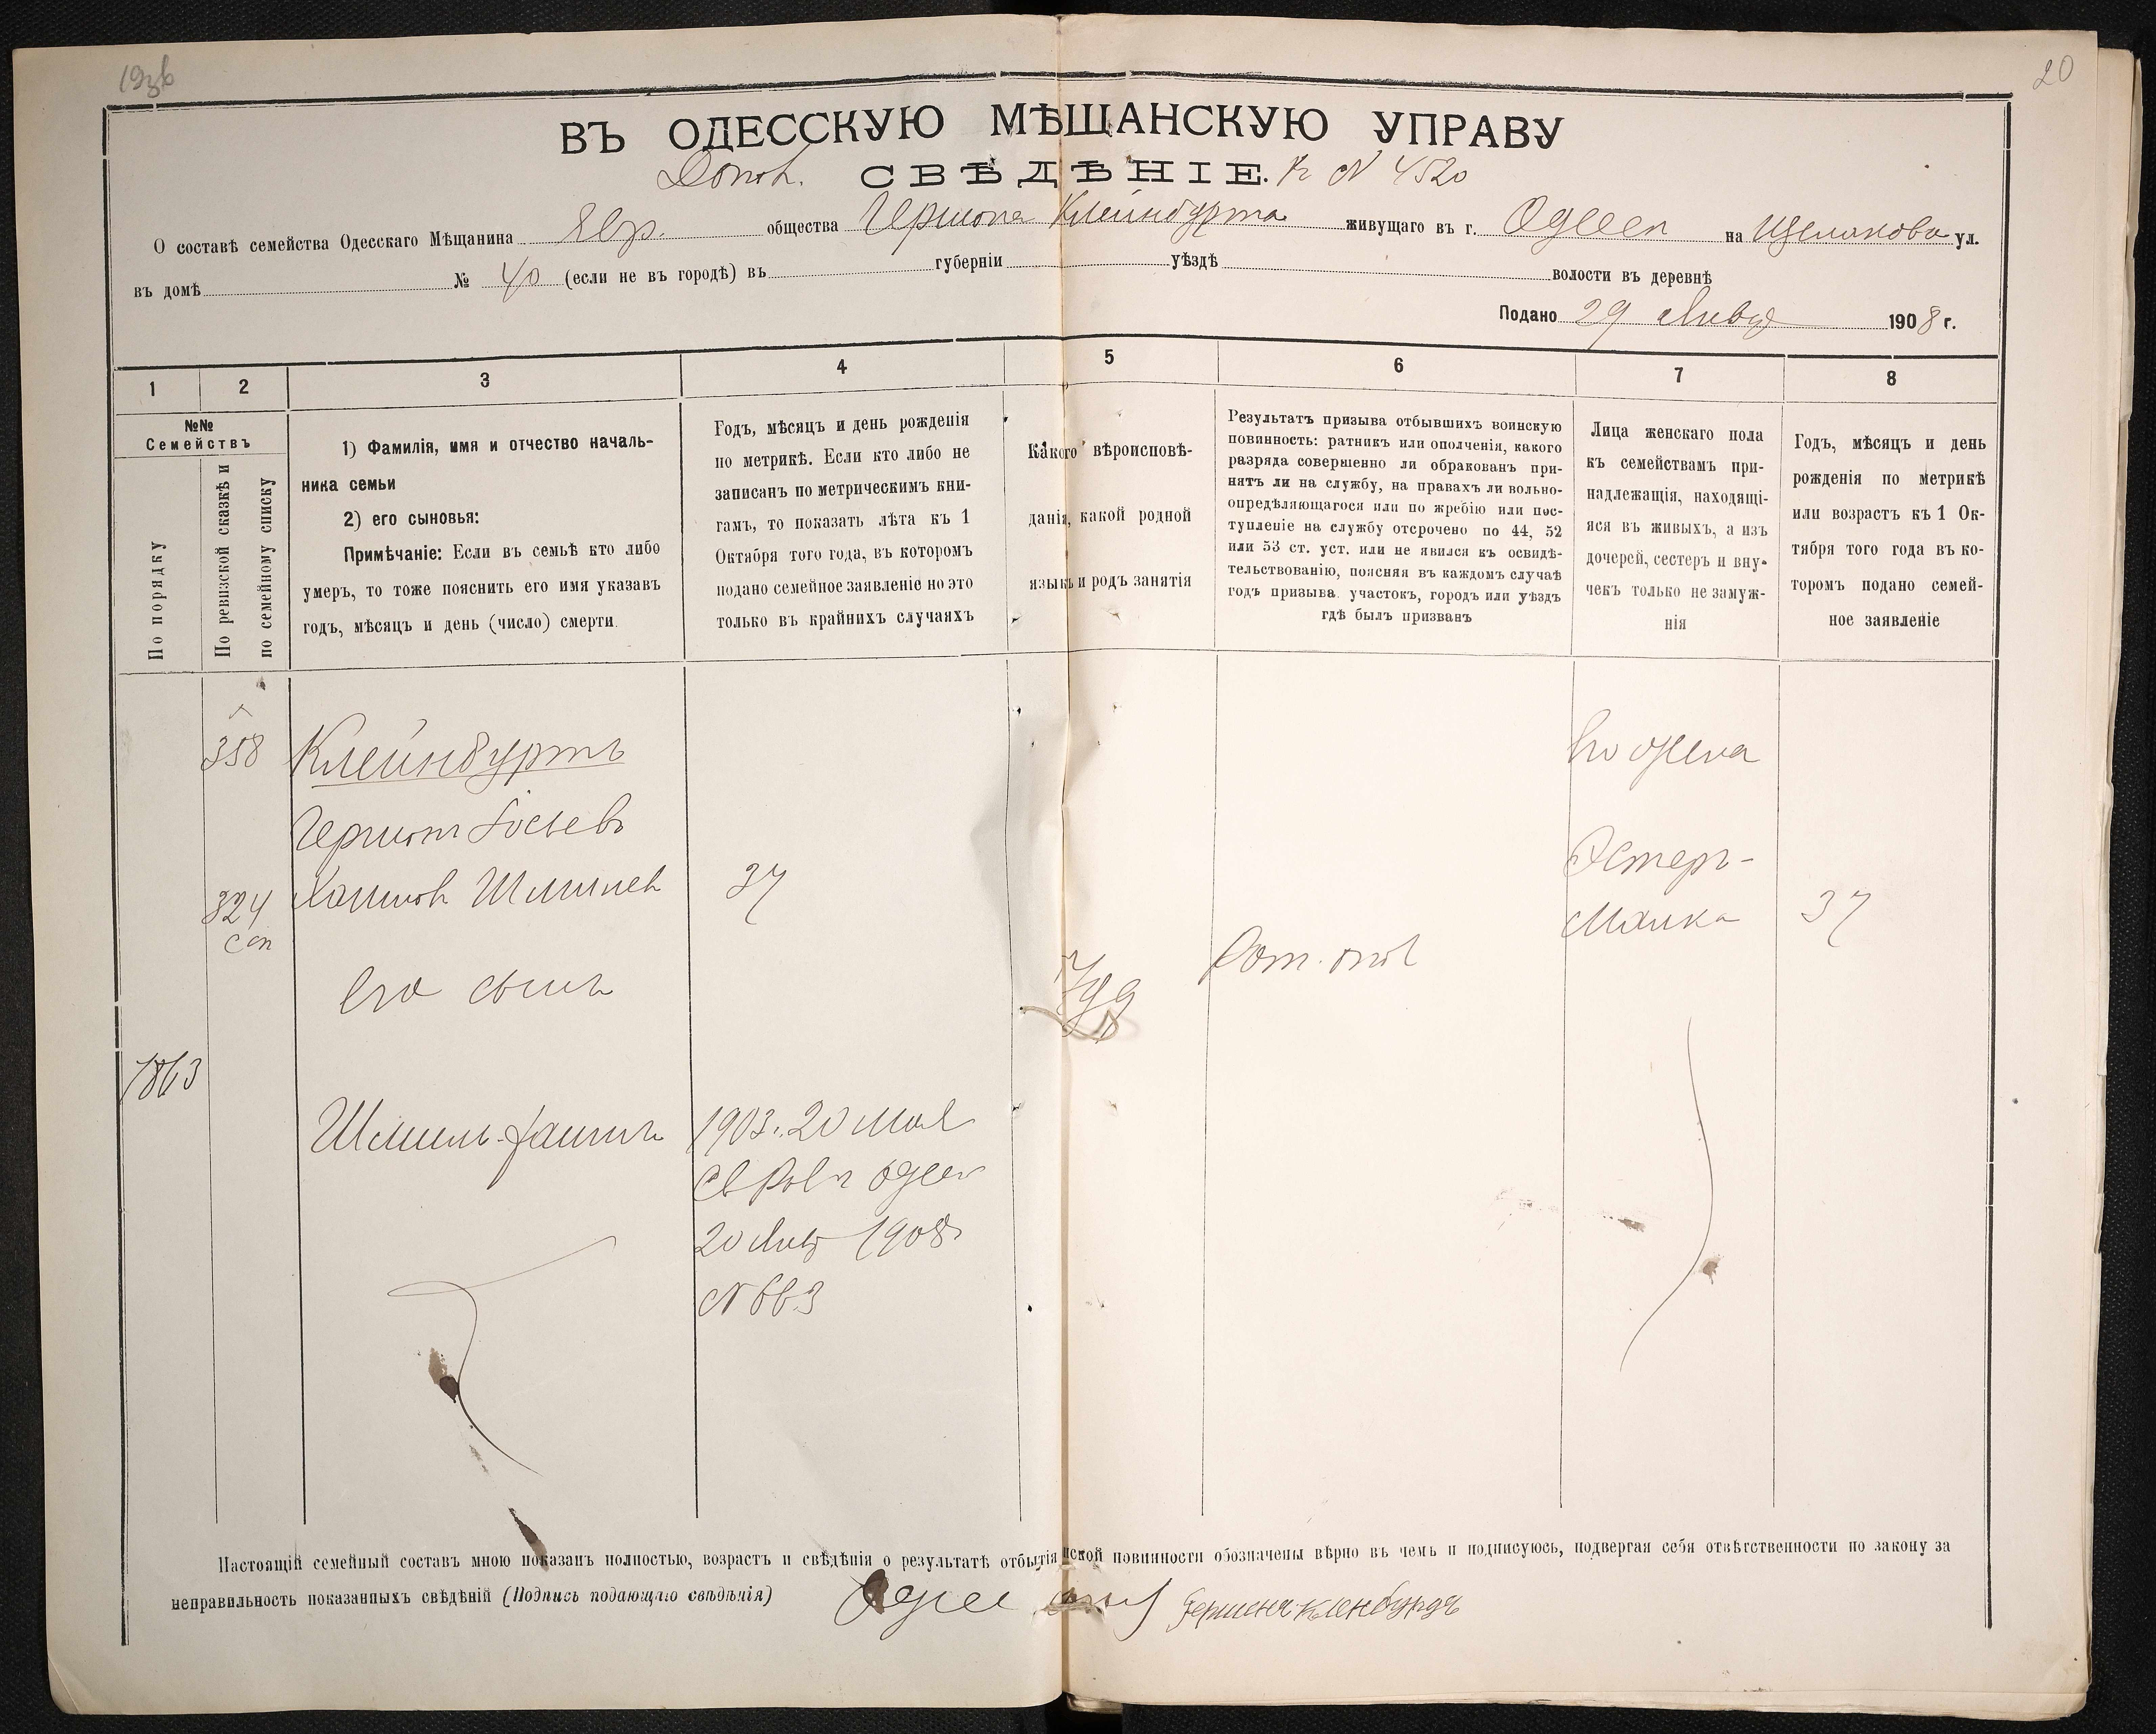 20
ВЪ ОДЕССКУЮ МѢЩАНСКУЮ УПРАВУ
СВѢДѢНІЕ. к N 4520
О составѣ семейства Одесскаго Мѣщанина Евр. общества Гершона Клейнбурта живущаго въ г. Одессѣ на ул.
въ домѣ № 40 (если не въ городѣ) въ губерніи уѣздѣ волости въ деревнѣ
Подано 29 1908 г.
1 2 3 4 5 6 7 8
№№
Семействъ
По порядку
По ревизской сказкѣ и
по семейному списку
1) Фамилія, имя и отчество началь-
ника семьи
2) его сыновья:
Примѣчаніе: Если въ семьѣ кто либо
умеръ, то тоже пояснить его имя указавъ
годъ, мѣсяцъ и день (число) смерти.
Годъ, мѣсяцъ и день рожденія
по метрикѣ. Если кто либо не
записанъ по метрическимъ кни-
гамъ, то показать лѣта къ 1
Октября того года, въ которомъ
подано семейное заявленіе но это
только въ крайнихъ случаяхъ
Какого вѣроисповѣ-
данія, какой родной
языкъ и родъ занятія
Результатъ призыва отбывшихъ воинскую
повинность: ратникъ или ополченія, какого
разряда совершенно ли обракованъ при-
нятъ ли на службу, на правахъ ли вольно-
опредѣляющагося или по жребію или пос-
тупленіе на службу отсрочено по 44, 52
или 53 ст. уст. или не явился къ освидѣ-
тельствованію, поясняя въ каждомъ случаѣ
годъ призыва. участокъ, городъ или уѣздъ
гдѣ былъ призванъ
Лица женскаго пола
къ семействамъ при-
надлежащія, находящі-
яся въ живыхъ, а изъ
дочерей, сестеръ и вну-
чекъ только не замуж-
нія
Годъ, мѣсяцъ и день
рожденія по метрикѣ
или возрастъ къ 1 Ок-
тября того года въ ко-
торомъ подано семей-
ное заявленіе
358 Клейнбуртъ
Его жена
Гершонъ Іосьевъ
Эстеръ-
324 37
Малка 37
Его сынъ
Рат. опол
1863
Шмиль-Хаимъ 1903 г. 20 Мая
20 1908
N 663
Настоящій семейный составъ мною показанъ полностью, возрастъ и свѣдѣнія о результатѣ отбытія нской повинности обозначены вѣрно въ чемъ и подписуюсь, подвергая себя отвѣтственности по закону за
неправильность показанныхъ свѣдѣній (Подпись подающаго свѣдѣнія)